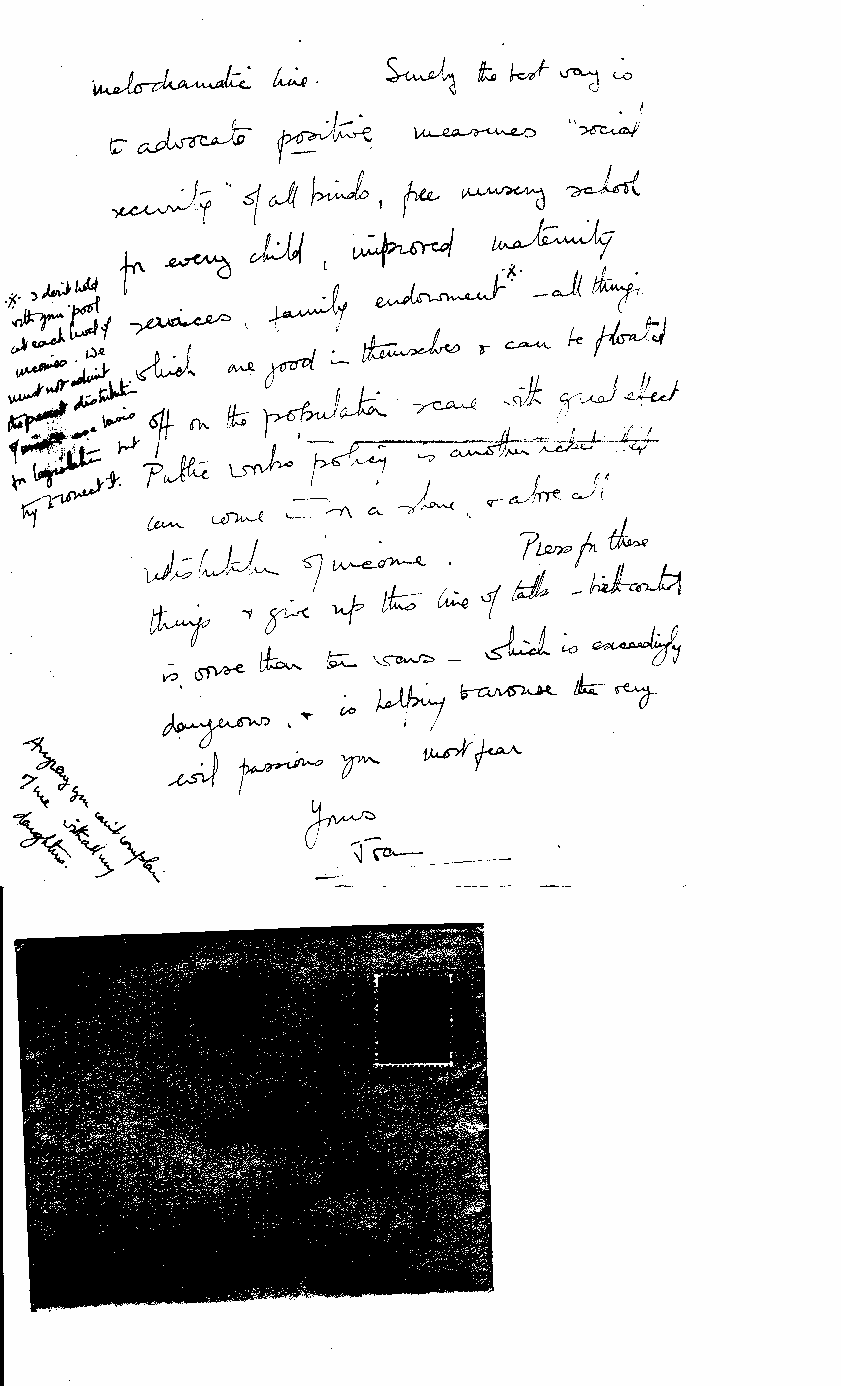 melodramatic line. Surely the best way is
to advocate positive measures "social
security" of all kinds, free nursery school
for every child, improved maternity
services, family endowment * - all things
which are good in themselves & can be floated
off on the population scare with great effect
Public works policy is another ticket that
can come in on a share, & above all
redistribution of income. Press for these
things & give up this line of talk - birth control
is worse than ten wars - which is exceedingly
dangerous, & is helping to arouse the very
evil passions you most fear
Yours
Joan
* I don't hold
with your 'pool
at each level of
incomes. We
must not admit
the present distribution
of as a basis
for legislation but
try to correct it.
Anyway you can't complain
of me with all my
daughters.